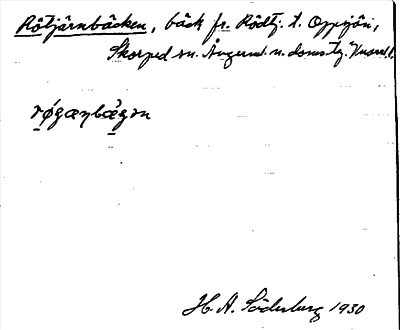 Rötjärnbäcken, bäck fr. Rödtj. t. Oppsjön,
Skorped sn. Ångerml. n. doms.
røgænbægən
H. A. Söderberg 1930